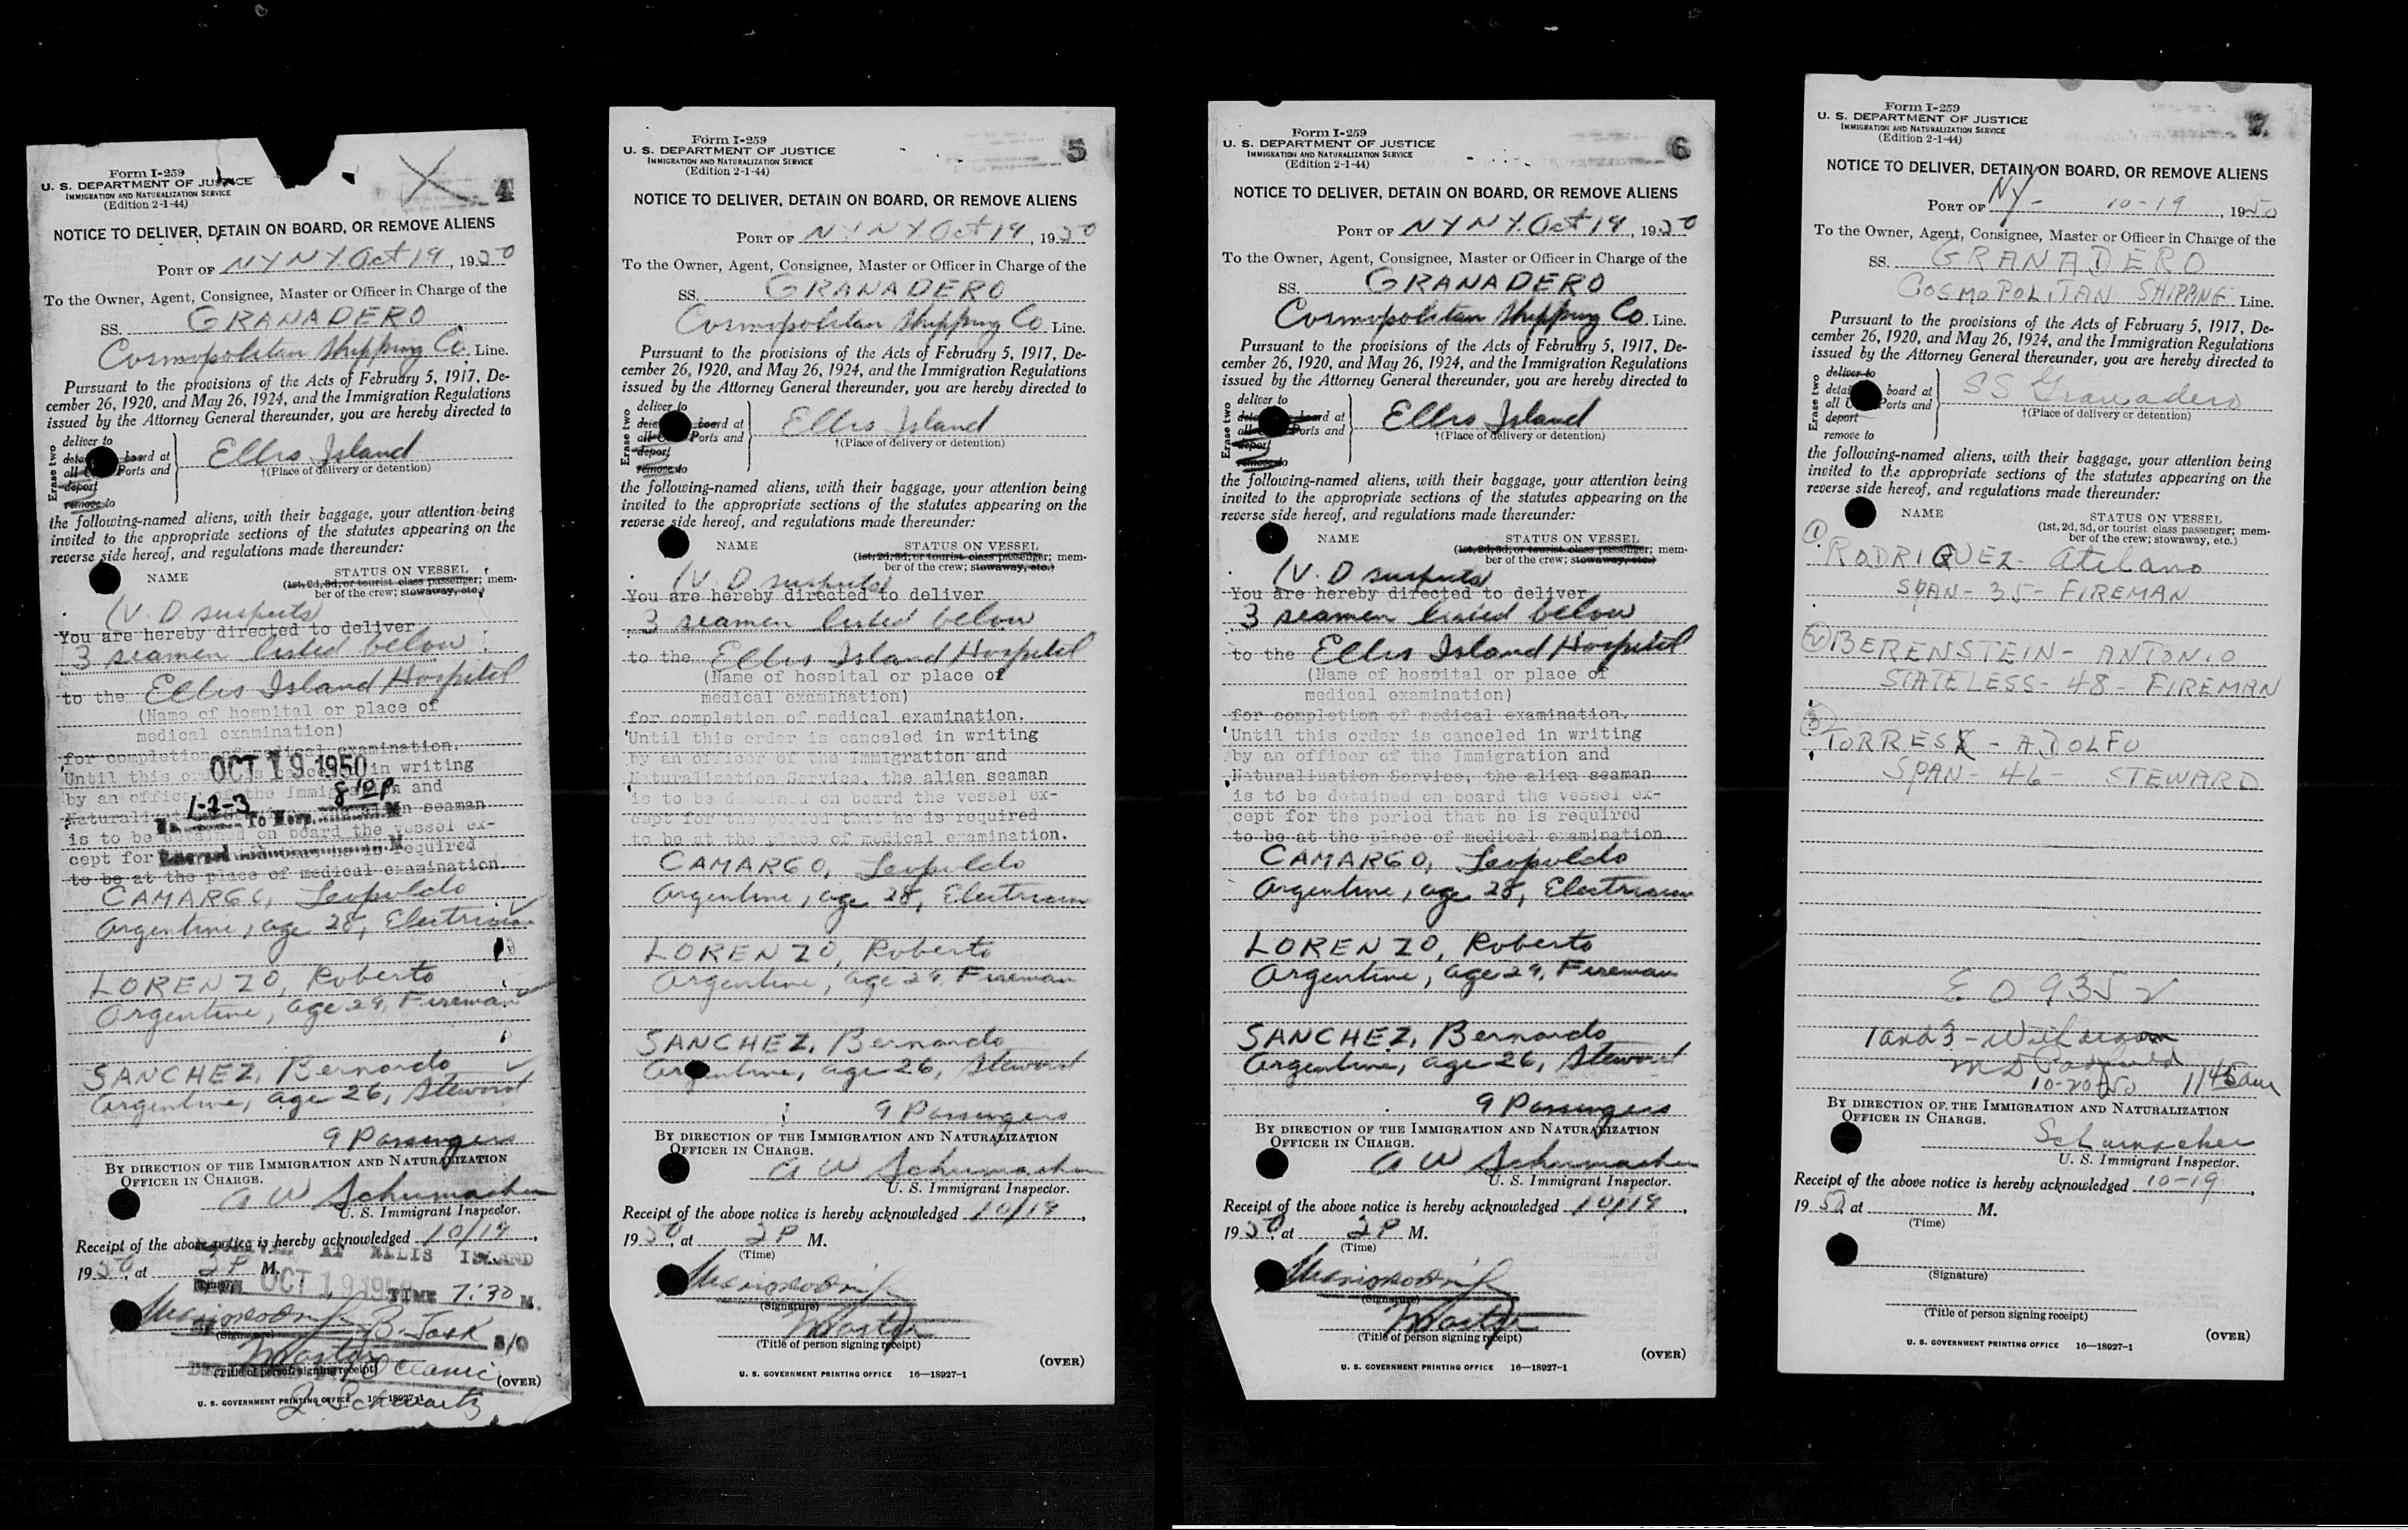 Form I-259
U. S. DEPARTMENT OF JUSTICE
IMMIGRATION AND NATURALIZATION SERVICE
(Edition 2-1-44)
4
NOTICE TO DELIVER, DETAIN ON BOARD, OR REMOVE ALIENS
PORT OF N Y N Y. Oct 19, 1950
To the Owner, Agent, Consignee, Master or Officer in Charge of the
SS. GRANADERO
Cosmopolitan Shipping Co. Line.
Pursuant to the provisions of the Acts of February 5, 1917, De-
cember 26, 1920, and May 26, 1924, and the Immigration Regulations
issued by the Attorney General thereunder, you are hereby directed to
Erase two
deliver to
board at
all Ports and
deport
remove to
Ellis Island
†(Place of delivery or detention)
the following-named aliens, with their baggage, your attention being
invited to the appropriate sections of the statutes appearing on the
reverse side hereof, and regulations made thereunder:
NAME STATUS ON VESSEL
(1st, 2d, 3d, or tourist class passenger; mem-
ber of the crew; stowaway, etc.)
(V. D suspects)
You are hereby directed to deliver
3 seamen listed below:
to the Ellis Island Hospital
(Name of hospital or place of
medical examination)
for completion of medical examination.
OCT 19 1950
Until this order is canceled in writing
by an officer of the Immigration and
8 10 P
1-2-3
No. To Hosp. M
Naturalization Service, the alien seaman
is to be detained on board the vessel ex-
cept for the period that he is required
to be at the place of medical examination.
CAMARGO, Leopoldo
Argentine, age 28, Electrician
LORENZO, Roberto
Argentine, age 29, Fireman
SANCHEZ, Bernardo
Argentine, age 26, Steward
9 Passengers
BY DIRECTION OF THE IMMIGRATION AND NATURALIZATION
OFFICER IN CHARGE.
A W Schumacher
U. S. Immigrant Inspector.
Receipt of the above notice is hereby acknowledged 10/19,
AT ELLIS ISLAND
1950, at 2 P M.
OCT 19 1950 TIME 7:30 M.
(Signature)
Master
(Title of person signing receipt)
(OVER)
U. S. GOVERNMENT PRINTING OFFICE 16—18927-1
Schwartz
Form I-259
U. S. DEPARTMENT OF JUSTICE
IMMIGRATION AND NATURALIZATION SERVICE
(Edition 2-1-44)
5
NOTICE TO DELIVER, DETAIN ON BOARD, OR REMOVE ALIENS
PORT OF N Y N Y Oct 19, 1950
To the Owner, Agent, Consignee, Master or Officer in Charge of the
SS. GRANADERO
Cosmopolitan Shipping Co. Line.
Pursuant to the provisions of the Acts of February 5, 1917, De-
cember 26, 1920, and May 26, 1924, and the Immigration Regulations
issued by the Attorney General thereunder, you are hereby directed to
Erase two
deliver to
board at
all Ports and
deport
remove to
Ellis Island
†(Place of delivery or detention)
the following-named aliens, with their baggage, your attention being
invited to the appropriate sections of the statutes appearing on the
reverse side hereof, and regulations made thereunder:
NAME STATUS ON VESSEL
(1st, 2d, 3d, or tourist class passenger; mem-
ber of the crew; stowaway, etc.)
(V. D suspects)
You are hereby directed to deliver
3 seamen listed below
to the Ellis Island Hospital
(Name of hospital or place of
medical examination)
for completion of medical examination.
Until this order is canceled in writing
by an officer of the Immigration and
Naturalization Service, the alien seaman
is to be detained on board the vessel ex-
cept for the period that he is required
to be at the place of medical examination.
CAMARGO, Leopoldo
Argentine, age 28, Electrician
LORENZO, Roberto
Argentine, age 29, Fireman
SANCHEZ, Bernardo
Argentine, age 26, Steward
9 Passengers
BY DIRECTION OF THE IMMIGRATION AND NATURALIZATION
OFFICER IN CHARGE.
A W Schumacher
U. S. Immigrant Inspector.
Receipt of the above notice is hereby acknowledged 10/19,
1950, at 2 P M.
(Time)
(Signature)
Master
(Title of person signing receipt)
(OVER)
U. S. GOVERNMENT PRINTING OFFICE 16—18927-1
Form I-259
U. S. DEPARTMENT OF JUSTICE
IMMIGRATION AND NATURALIZATION SERVICE
(Edition 2-1-44)
6
NOTICE TO DELIVER, DETAIN ON BOARD, OR REMOVE ALIENS
PORT OF N Y N Y. Oct 19, 1950
To the Owner, Agent, Consignee, Master or Officer in Charge of the
SS. GRANADERO
Cosmopolitan Shipping Co. Line.
Pursuant to the provisions of the Acts of February 5, 1917, De-
cember 26, 1920, and May 26, 1924, and the Immigration Regulations
issued by the Attorney General thereunder, you are hereby directed to
Erase two
deliver to
board at
all Ports and
deport
remove to
Ellis Island
†(Place of delivery or detention)
the following-named aliens, with their baggage, your attention being
invited to the appropriate sections of the statutes appearing on the
reverse side hereof, and regulations made thereunder:
NAME STATUS ON VESSEL
(1st, 2d, 3d, or tourist class passenger; mem-
ber of the crew; stowaway, etc.)
(V. D suspects)
You are hereby directed to deliver
3 seamen listed below
to the Ellis Island Hospital
(Name of hospital or place of
medical examination)
for completion of medical examination.
Until this order is canceled in writing
by an officer of the Immigration and
Naturalization Service, the alien seaman
is to be detained on board the vessel ex-
cept for the period that he is required
to be at the place of medical examination.
CAMARGO, Leopoldo
Argentine, age 28, Electrician
LORENZO, Roberto
Argentine, age 29, Fireman
SANCHEZ, Bernardo
Argentine, age 26, Steward
9 Passengers
BY DIRECTION OF THE IMMIGRATION AND NATURALIZATION
OFFICER IN CHARGE.
A W Schumacher
U. S. Immigrant Inspector.
Receipt of the above notice is hereby acknowledged 10/19,
1950, at 2 P M.
(Time)
(Signature)
Master
(Title of person signing receipt)
(OVER)
U. S. GOVERNMENT PRINTING OFFICE 16—18927-1
Form I-259
U. S. DEPARTMENT OF JUSTICE
IMMIGRATION AND NATURALIZATION SERVICE
(Edition 2-1-44)
7
NOTICE TO DELIVER, DETAIN ON BOARD, OR REMOVE ALIENS
PORT OF NY- 10-19, 1950
To the Owner, Agent, Consignee, Master or Officer in Charge of the
SS. GRANADERO
COSMOPOLITAN SHIPPING Line.
Pursuant to the provisions of the Acts of February 5, 1917, De-
cember 26, 1920, and May 26, 1924, and the Immigration Regulations
issued by the Attorney General thereunder, you are hereby directed to
Erase two
deliver to
board at
all Ports and
deport
remove to
SS Granadero
†(Place of delivery or detention)
the following-named aliens, with their baggage, your attention being
invited to the appropriate sections of the statutes appearing on the
reverse side hereof, and regulations made thereunder:
NAME STATUS ON VESSEL
(1st, 2d, 3d, or tourist class passenger; mem-
ber of the crew; stowaway, etc.)
① RODRIQUEZ- Atilano
SPAN- 35- FIREMAN
② BERENSTEIN- ANTONIO
STATELESS- 48- FIREMAN
③ TORRES - ADOLFO
SPAN- 46- STEWARD
E O 9352
1 and 3 - Withdrawn
10-20-50 11 45 am
BY DIRECTION OF THE IMMIGRATION AND NATURALIZATION
OFFICER IN CHARGE.
Schumacher
U. S. Immigrant Inspector.
Receipt of the above notice is hereby acknowledged 10-19,
1950, at M.
(Time)
(Signature)
(Title of person signing receipt)
(OVER)
U. S. GOVERNMENT PRINTING OFFICE 16—18927-1